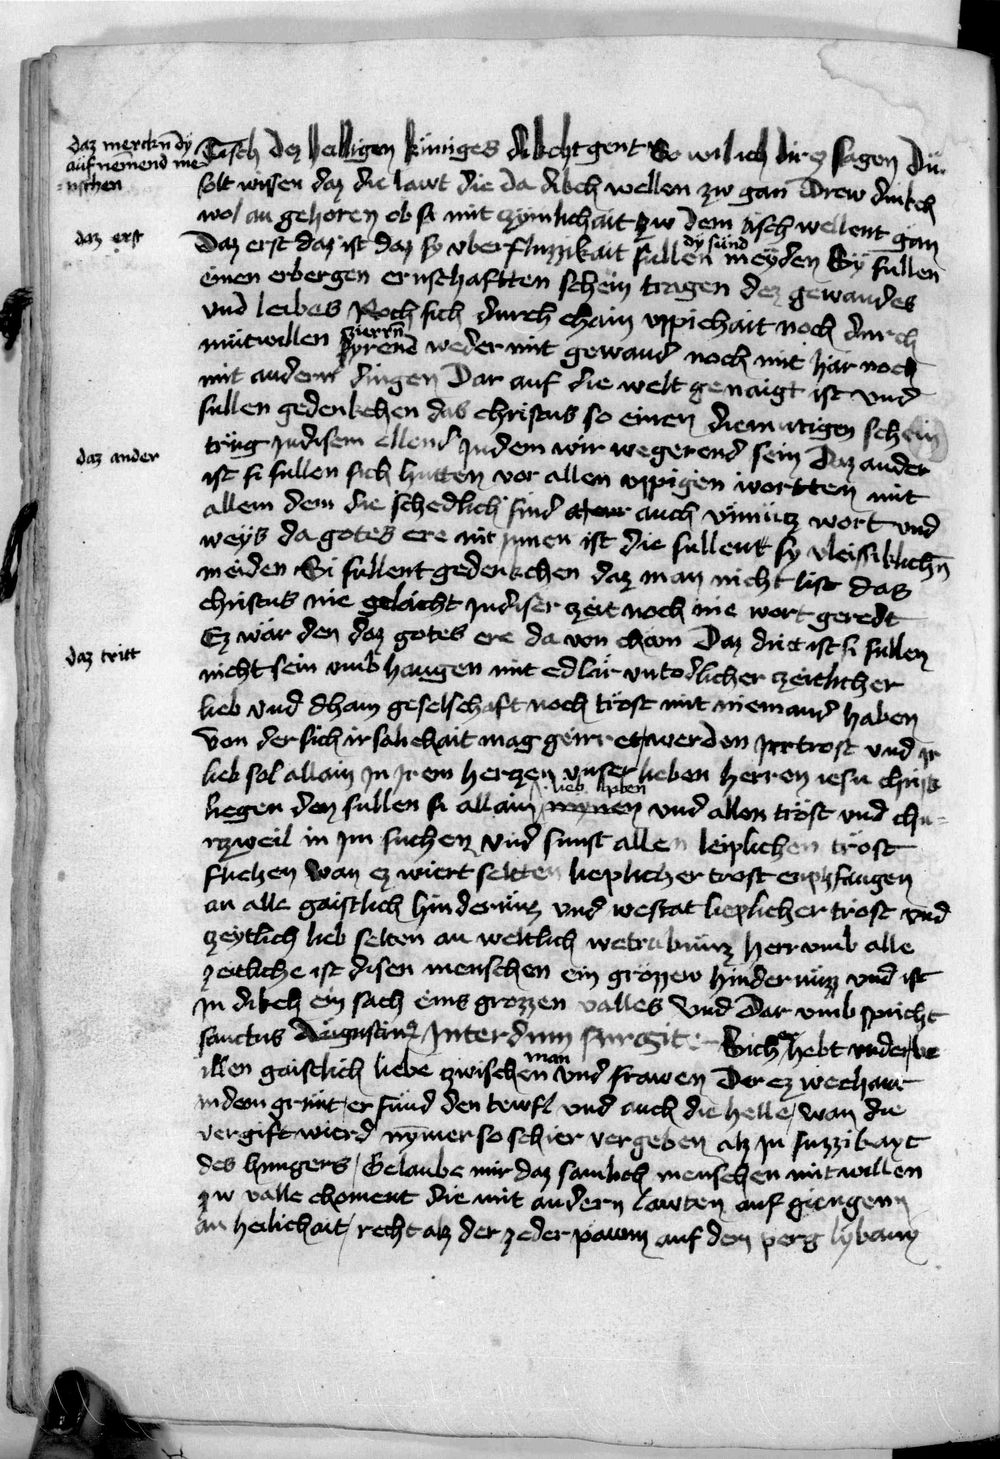 daz merckn dy
aufnemend me-
nschen
Tisch dez heiligen küniges dikcht gent So wil ich dirz sagen Du
solt wissen daz die lawt die da dikch wellen zw gan Drew dinkch
wol an gehoren ob si mit czymlichait zw dem tisch wellent gan
daz erst
Daz erst daz ist daz sy vberfluzzikait sullen dy sünd meyden Sy sullen
einen erbergen ernschaftten schein tragen dez gewandes
vnd leibes Noch sich durch chain vppichait noch durch
mutwillen zierrn weder mit gewand noch mit har noch
mit andern dingen Dar auf die welt genaigt ist vnd
sullen gedenkchen das christus so einen diemutigen schein
trüg jn disem ellend jn dem wir wegerend sein Daz ander
daz ander
ist si sullen sich hutten vor allen vppigen wortten mit
allem dem die schedlich sind auch vnnücz wort vnd
weys da gotes ere nit jnnen ist die sullent sy vleissiklichn
meiden Si sullent gedenkchen daz man nicht list das
christus nie gelacht jn diser zeit noch nie wort geredt
Ez wär den daz gotes ere da von chom Daz dritt ist si sullen
daz tritt
nicht sein vmbhangen mit edlär vntodlicher zeitlicher
lieb vnd dhain geselschaft noch tröst mit niemand haben
von der sich ir salichait mag geirret werden jr trost vnd jr
lieb sol allain jn jrem herczen vnser lieben herren iesu christ
liegen den sullen si allain lieb haben vnd allen tröst vnd chu-
rczweil in jm suchen vnd sunst allen leiplichen tröst
fliehen wan ez wiert seltten lieplicher trost enphfangen
an alle gaistlich hindernüz vnd westat lieplicher tröst vnd
zeytlich lieb selten an weltlich wetrubnüz herr vmb alle
zeitliche ist disen menschen ein grözzew hindernüzz vnd ist
jn dikch ein sach eins grozzen valles vnd Dar vmb spricht
sanctus Augustinus Interdum surgit Sich hebt vnder
illen gaistlich liebe zwischen man vnd frawen Der ez wechant
in dem grunt er fund den tewfl vnd auch die helle / wan die
vergift wierd nymer so schier vergeben alz jn suzzikayt
des hungers / Gelaube mir daz samlich menschen mit willen
zw valle choment die mit andern lawten auf giengenn
an heilichait / recht alz der zeder pawm auf dem perg lybann